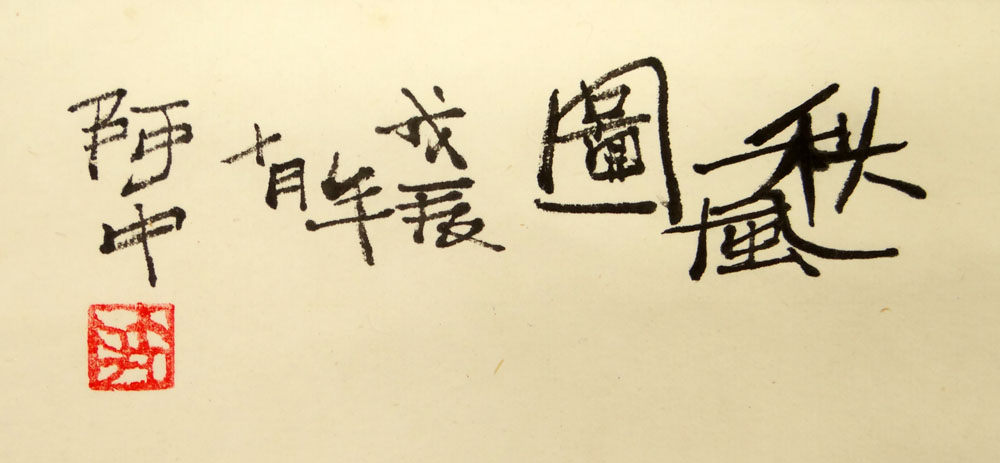 秋風圖
戊辰年十月
阿中